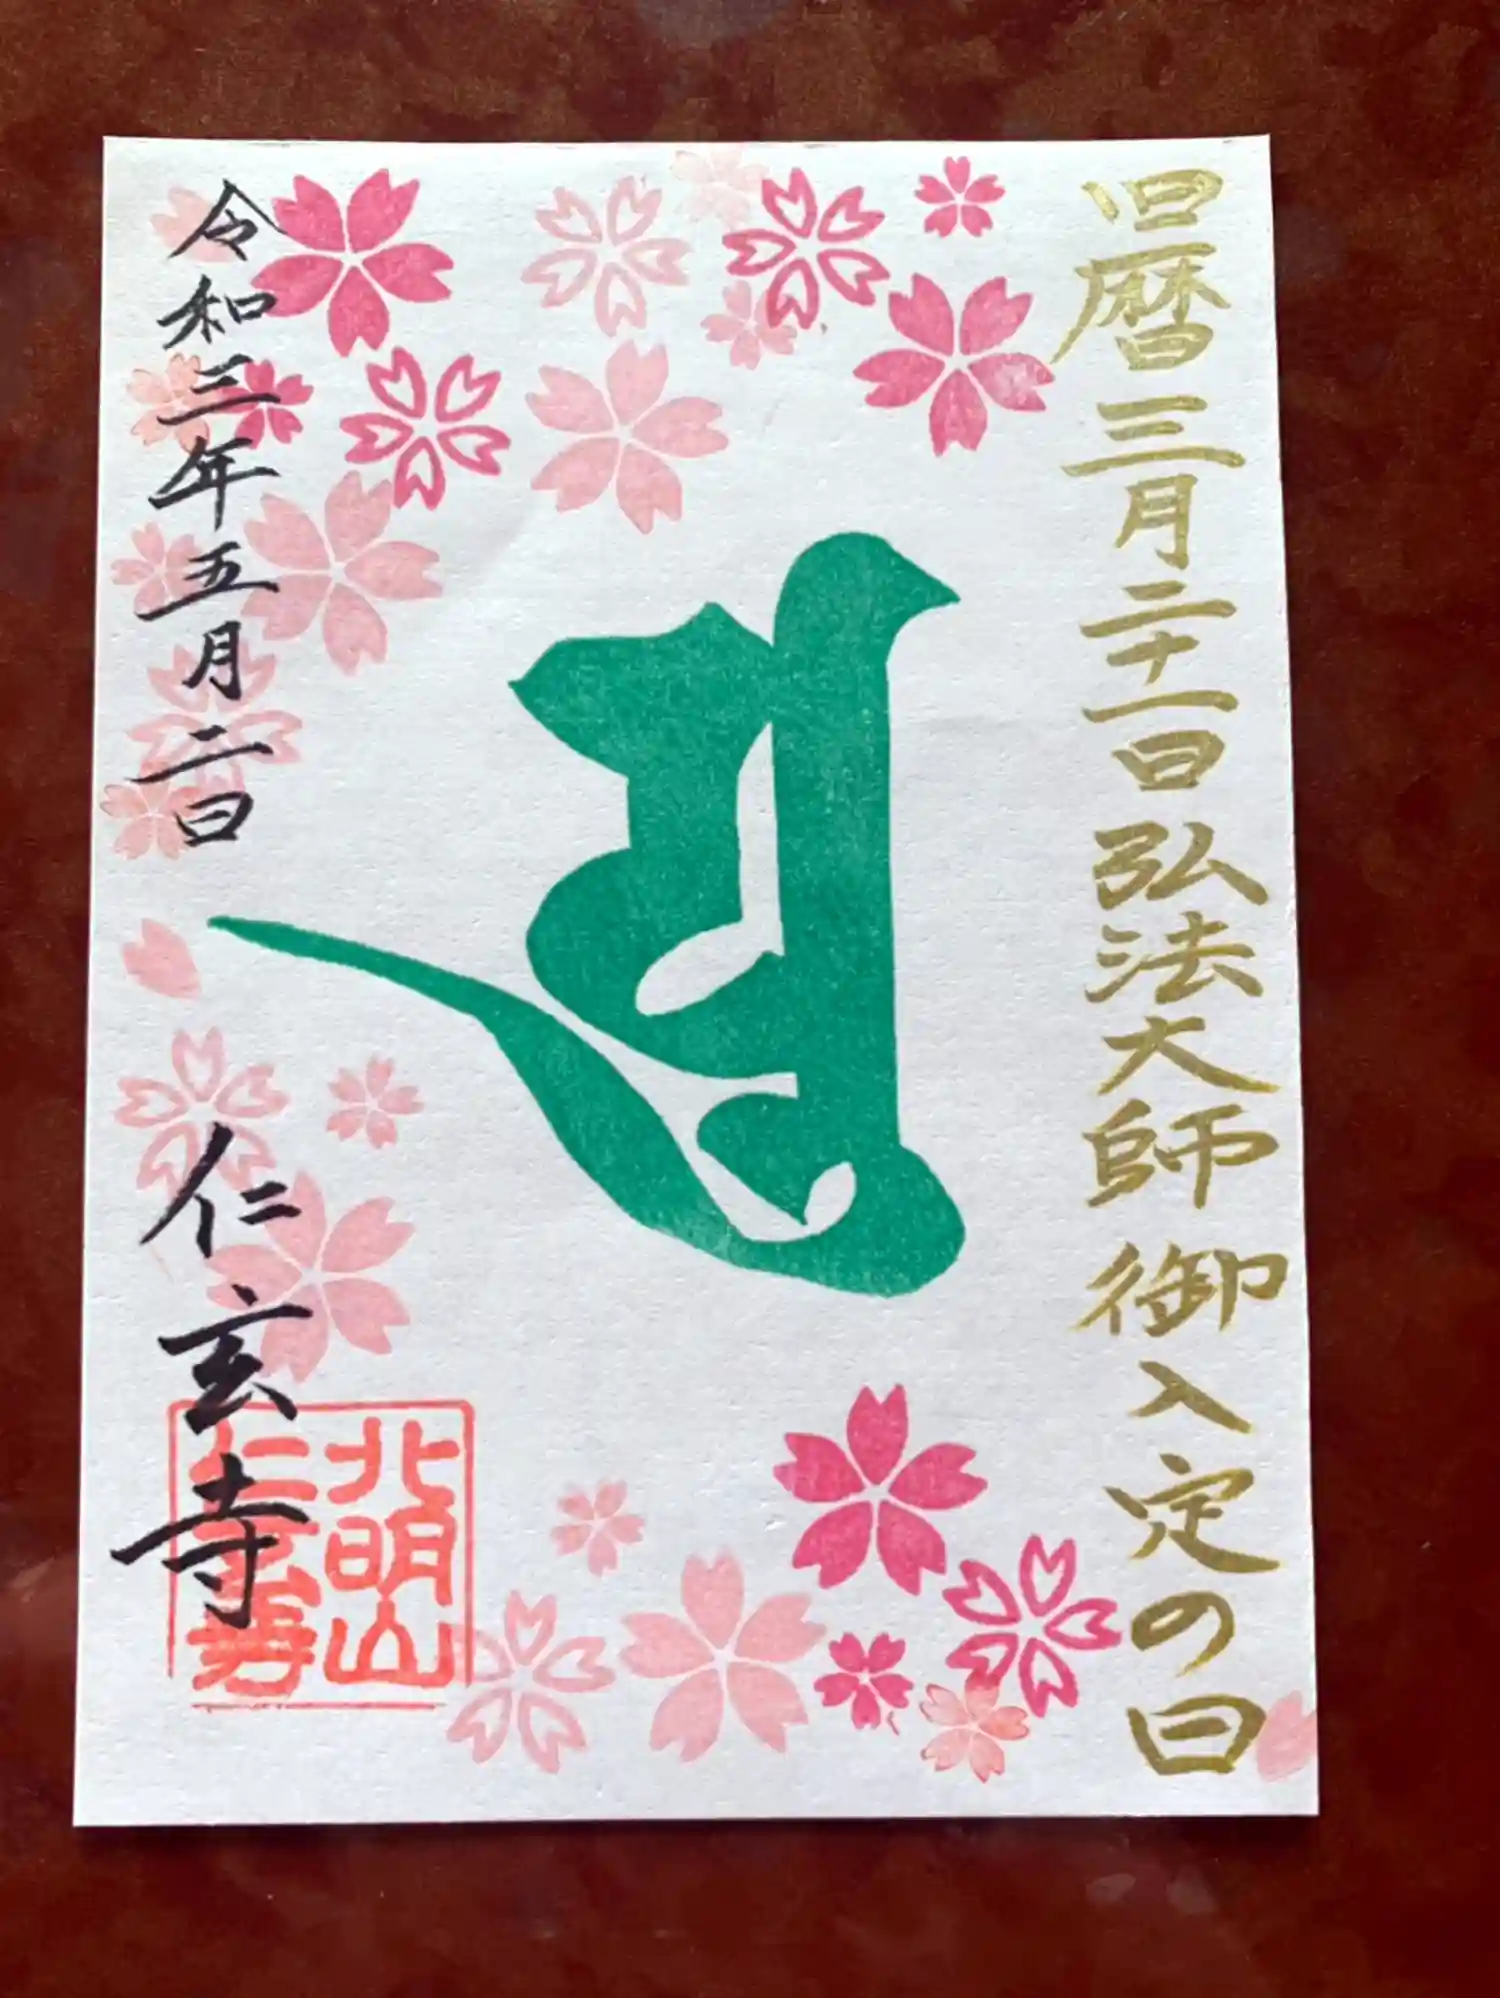 旧暦三月二十一日弘法大師御入定の日
令和三年五月二日
仁玄寺
北明山
仁玄寺